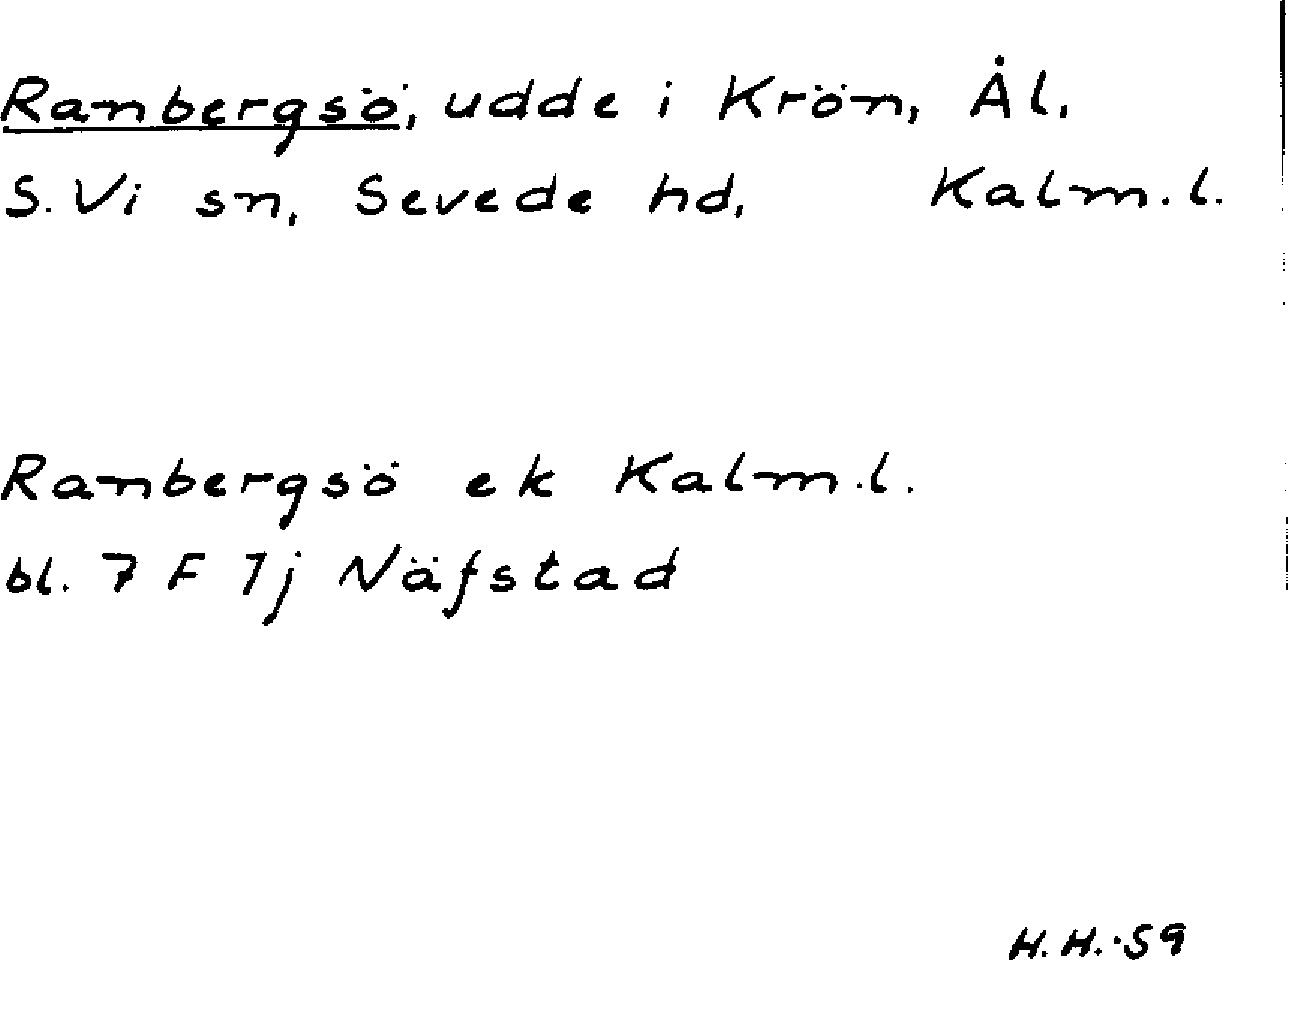 Ranbergsö, udde i Krön, Ål,
S. Vi sn, Sevede hd, Kalm.l.
Ranbergsö ek Kalm.l.
bl. 7 F 1j Näfstad
H.H.·59